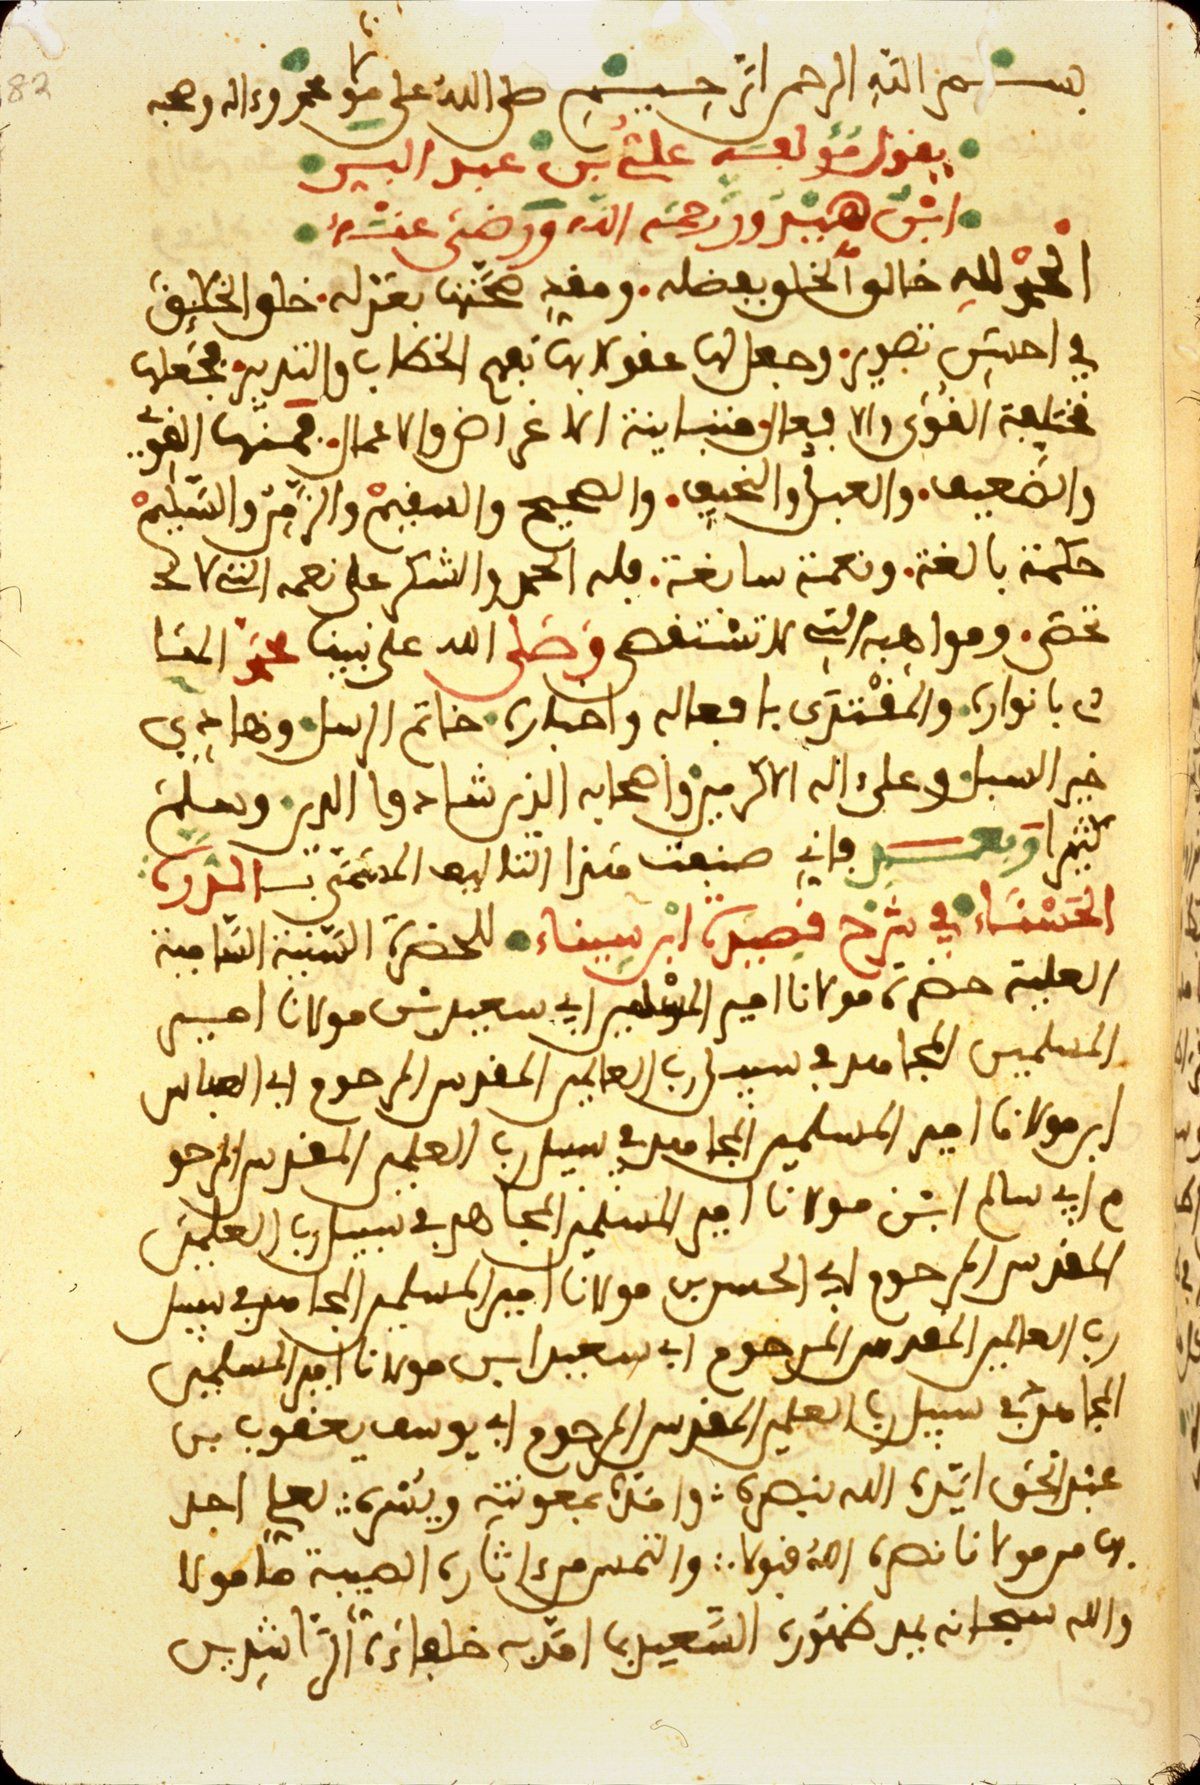 بســـم الله الرحمن الرحيم صلى الله على مولانا محمد وءاله وصحبه
يقول مؤلفه علي بن عبد
ابن هيدور رحمه الله ورضي عنه
الحمد لله خالق الخلق بفضله. ومفيد صحتها بعدله. خلق الخلايق
في احسن تصوير. وجعل لها عقولا بها تفهم الخطاب والتدبير. فجعلها
مختلفة القوى والافعال. متباينة الاغراض والاعمال. فمنها القوي
والضعيف. والعبل والنحيف. والصحيح والسقيم والزمن والسليم
حكمة بالغة. ونعمة سابغة. فله الحمد والشكر على نعمه التي لا
تحصى. ومواهبه التي لا تستقصى وصلى الله على نبينا محمد
بانواره. والمقتدى بافعاله واخباره. خاتم الرسل وهادي
خير السبل وعلى ءاله الاكرمين واصحابه الذين شادوا الدين. وسلم
كثيرا وبعـــد فاني صنعت هذا التاليف المسمى بـــالدرة
الحسناء في شرح قصيدة ابن سيناء. للحضرة السنية السامية
العلية حضرة مولانا امير المسلمين ابي سعيد بن مولانا امير
المسلمين المجاهد في سبيل رب العالمين المقدس المرحوم ابي العباس
ابن مولانا امير المسلمين المجاهد في سبيل رب العلمين المقدس المرحو
م ابي سالم ابن مولانا امير المسلمين المجاهد في سبيل رب العلمين
المقدس المرحوم ابي الحسن بن مولانا امير المسلمين المجاهد في سبيل
رب العالمين المقدس المرحوم ابي سعيد ابن مولانا امير المسلمين
المجاهد في سبيل رب العلمين المقدس المرحوم ابي يوسف يعقوب بن
عبد الحق ايده الله بنصره. وامده بمعونته ويسره. لعلي اجد
بها من مولانا نصره الله قبولا. والتمس من ءاثاره الصيبة مامولا
والله سبحانه يمد السعيد بما امد به خلفاءه الراشدين
82